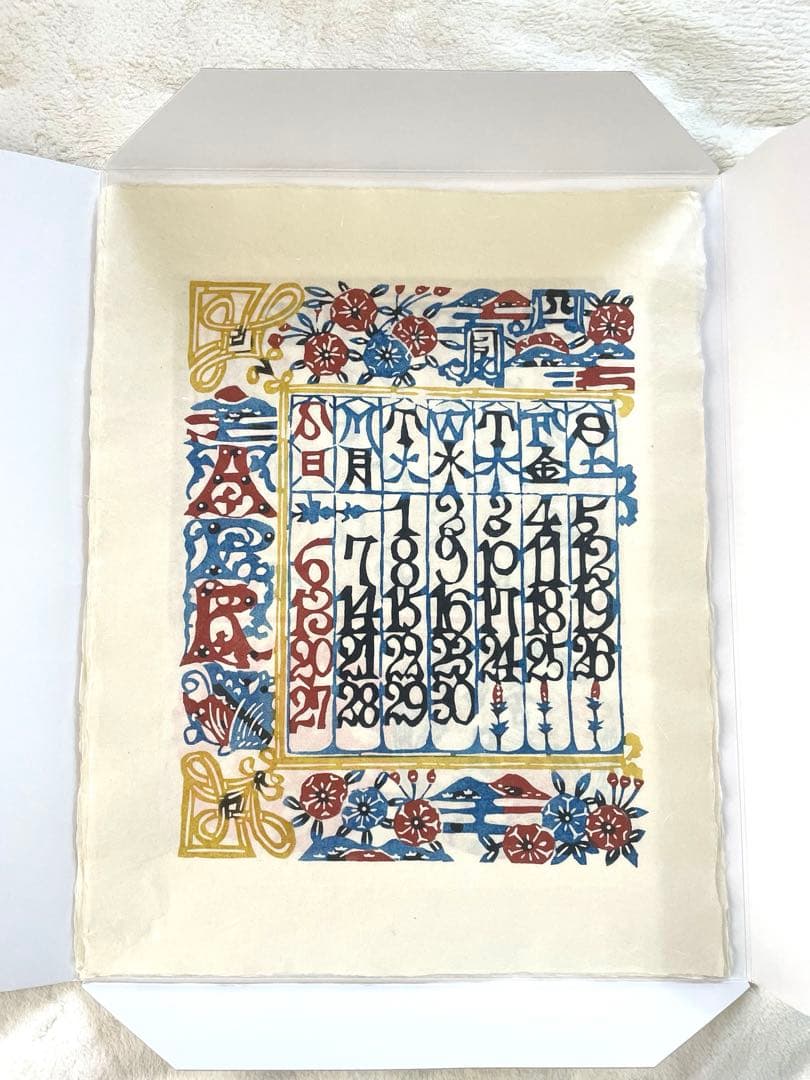 四月
APR
S M T W T F S
日 月 火 水 木 金 土
1 2 3 4 5
6 7 8 9 10 11 12
13 14 15 16 17 18 19
20 21 22 23 24 25 26
27 28 29 30